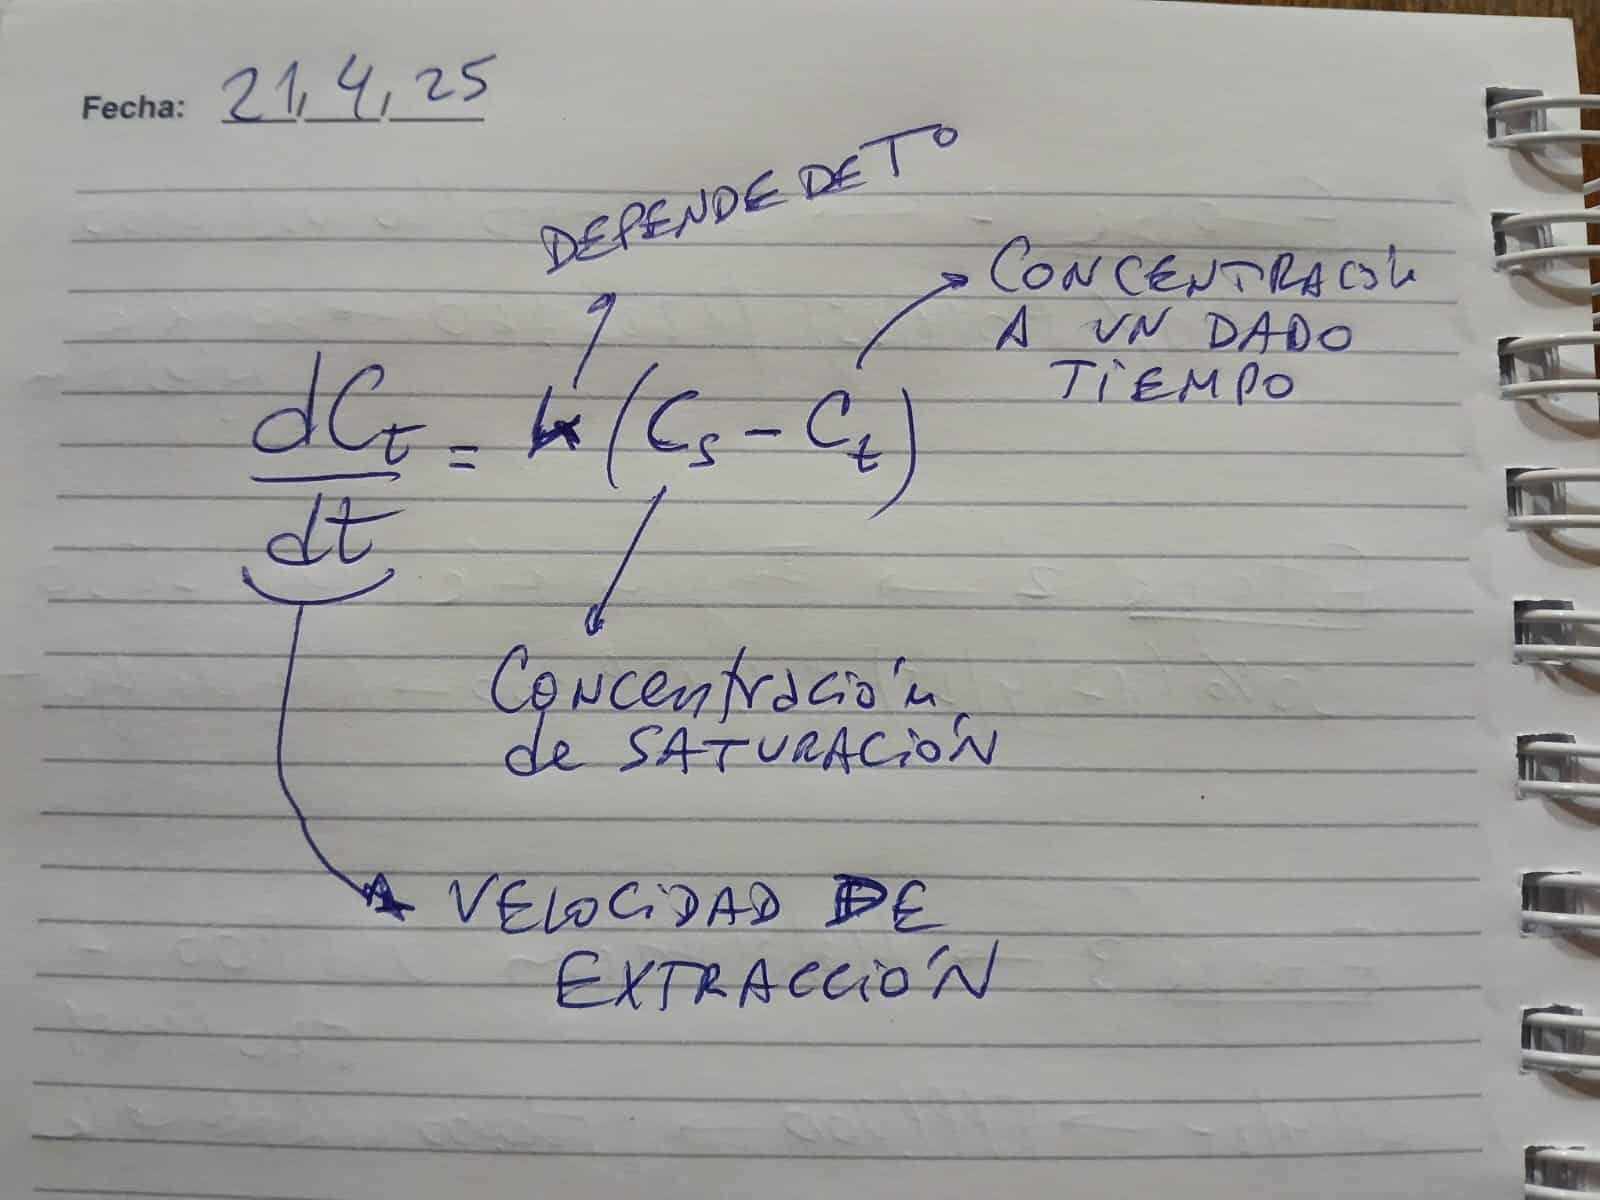 Fecha: 21, 4, 25
DEPENDE DE T°
CONCENTRACIÓN
A UN DADO
TIEMPO
dCt = k (Cs - Ct)
dt
Concentración
de SATURACIÓN
VELOCIDAD DE
EXTRACCIÓN